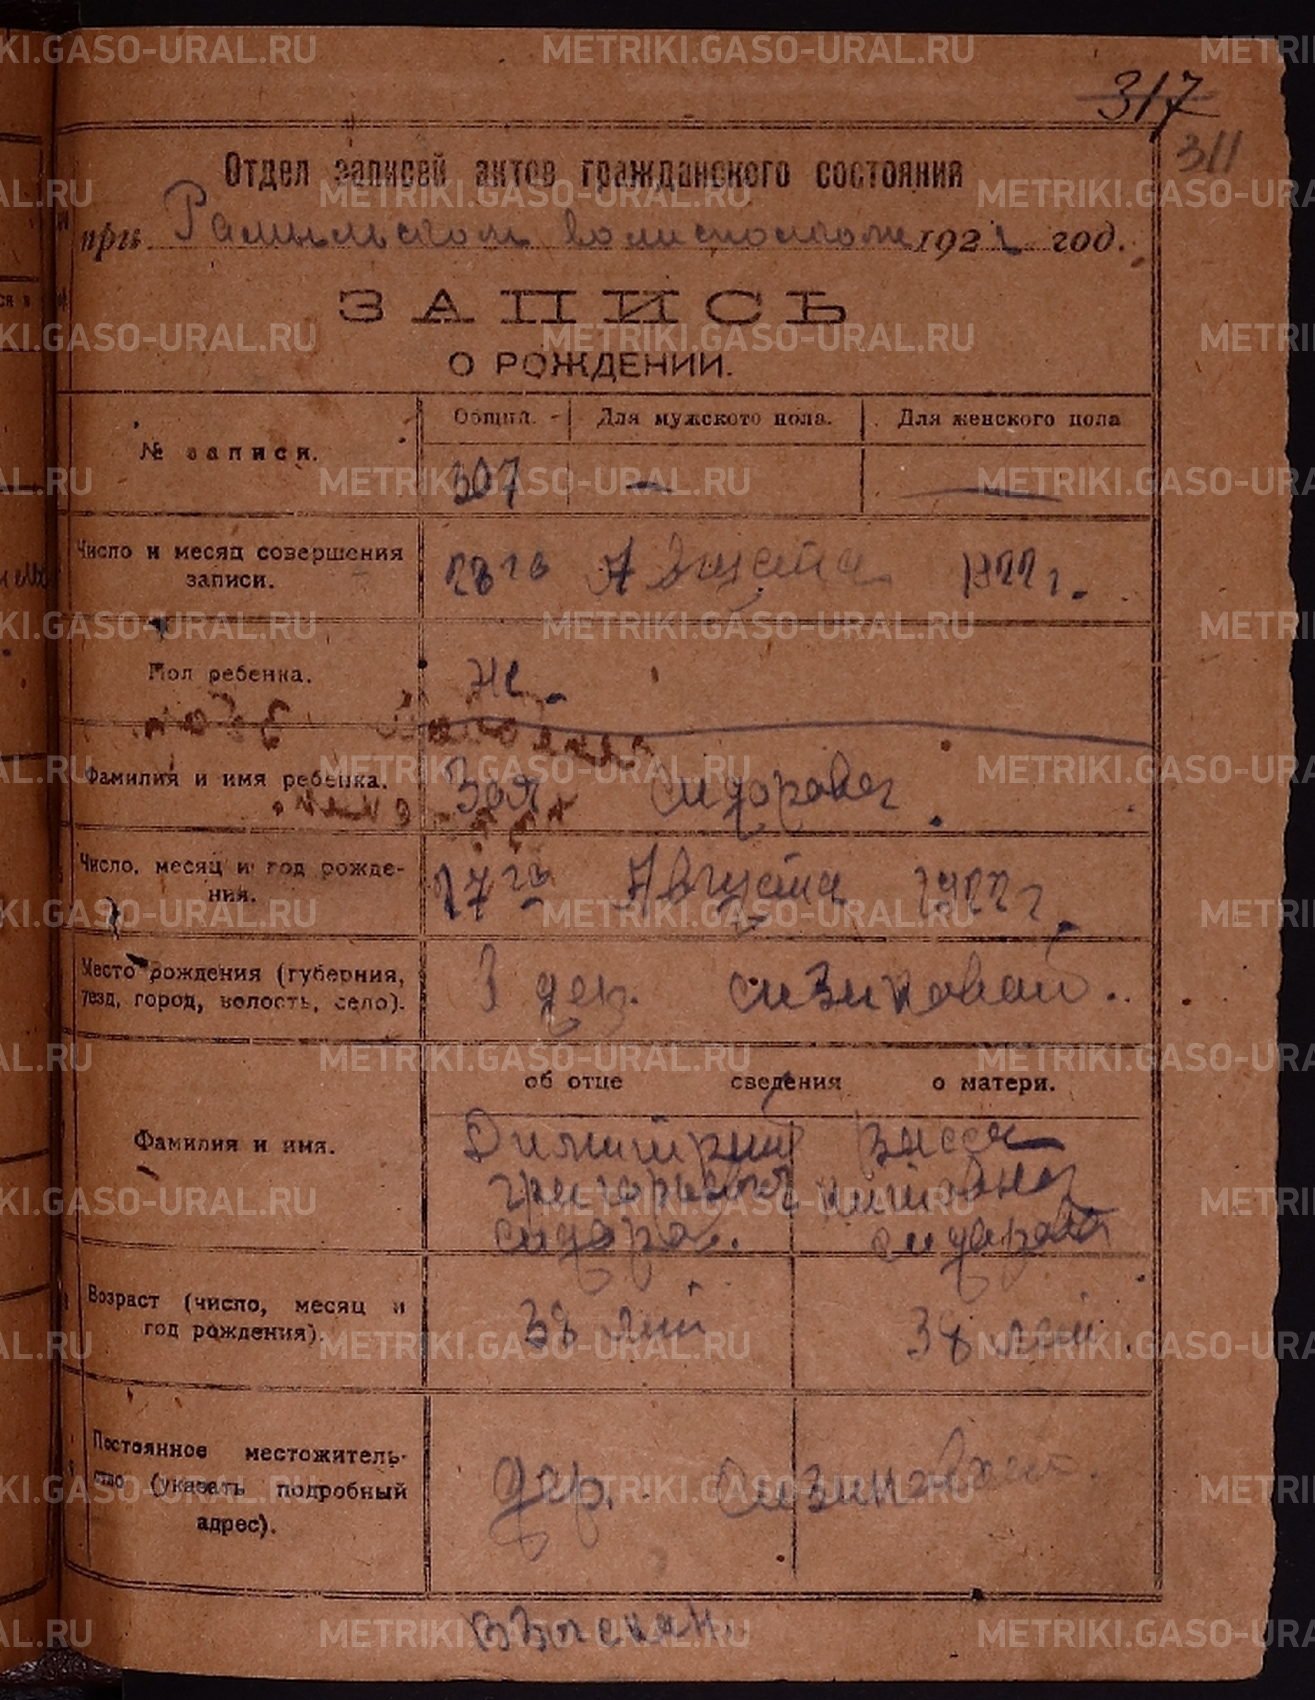 317
311
Отдел записей актов гражданского состояния
при 1922 год.
ЗАПИСЬ
О РОЖДЕНИИ.
№ записи.
Общий. Для мужского пола. Для женского пола
307 — —
Число и месяц совершения записи.
23 го Августа 1922 г.
Пол ребенка.
Же.
Фамилия и имя ребенка.
Зоя Сидорова.
Число, месяц и год рождения.
17 го Августа 1922 г.
Место рождения (губерния, уезд, город, волость, село).
дер.
об отце сведения о матери.
Фамилия и имя.
Димитрий Васса
Сидоров. Сидорова
Возраст (число, месяц и год рождения).
38 лет 38 лет.
Постоянное местожительство (указать подробный адрес).
дер.
METRIKI.GASO-URAL.RU